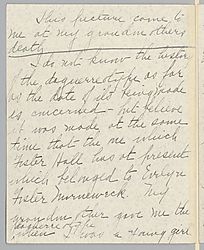 This picture came to
me at my grandmothers
death
I do not know the history
of the daguerreotype as far
as the date of its being made
is concerned - but believe
it was made at the same
time that the one which
Foster Hall has at present
which belonged to Evelyn
Foster Morneweck. My
grandmother gave me the
daguerreotype
when I was a young girl